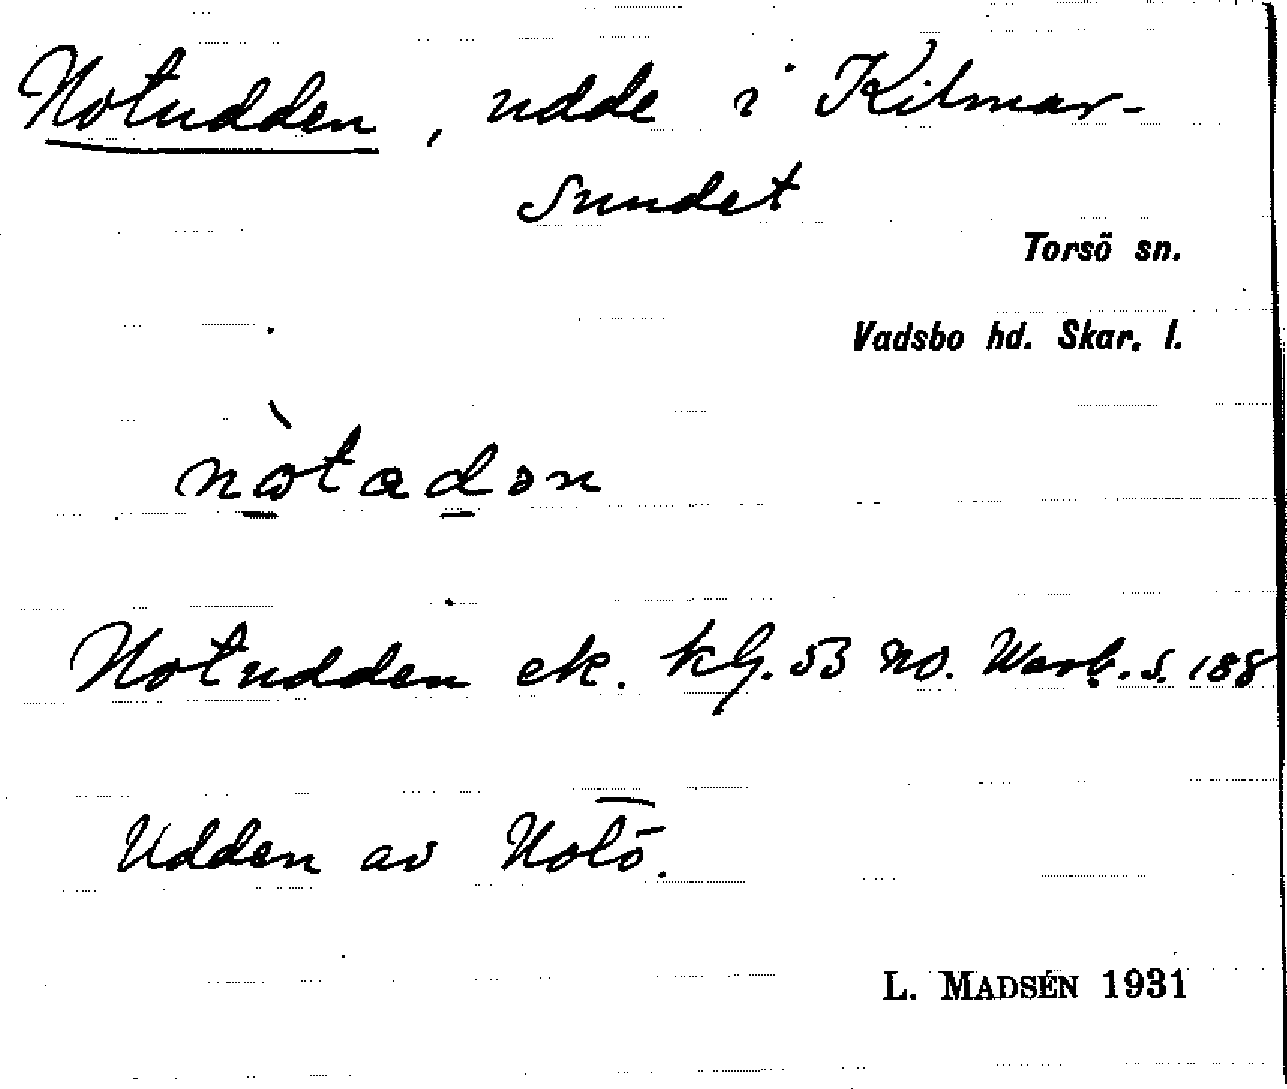 Notudden, udde i Kilmar-
sundet
Torsö sn.
Vadsbo hd. Skar. l.
nòtadən
Notudden ek. kbl. 53 NO. Warb. s. 188
Udden av Notö.
L. MADSÉN 1931